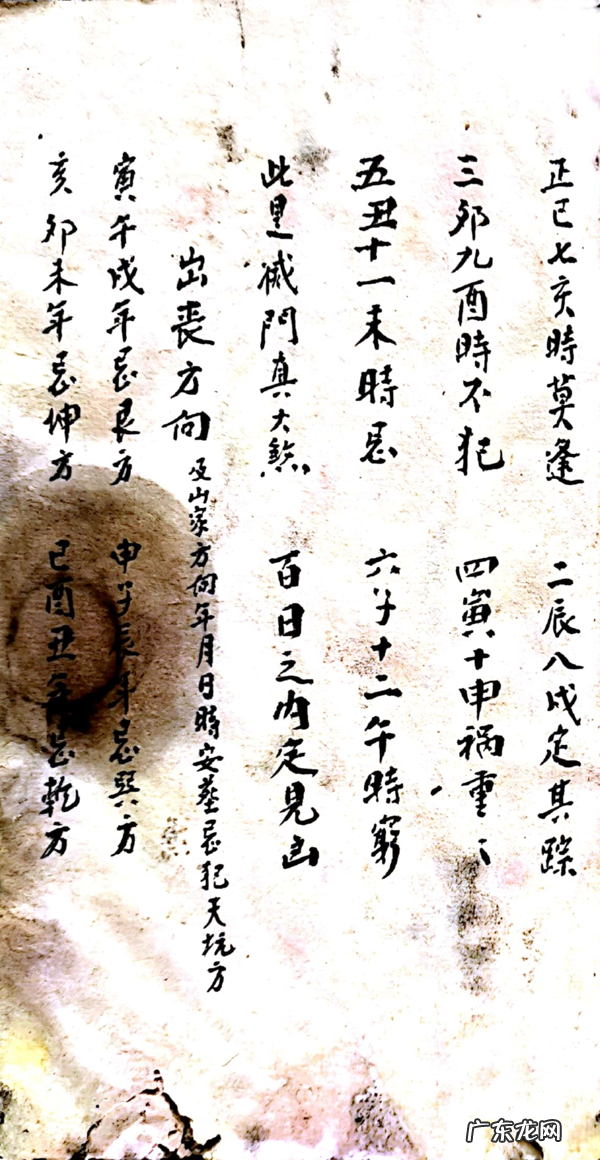 正巳七亥時莫逢 二辰八戌定其蹤
三卯九酉時不犯 四寅十申禍重〻
五丑十一未時忌 六子十二午時窮
此是滅門真大煞 百日之內定見凶
出喪方向 及山家方向年月日時安葬忌犯天坑方
寅午戌年忌艮方 申子辰年忌巽方
亥卯未年忌坤方 巳酉丑年忌乾方
广东龙网